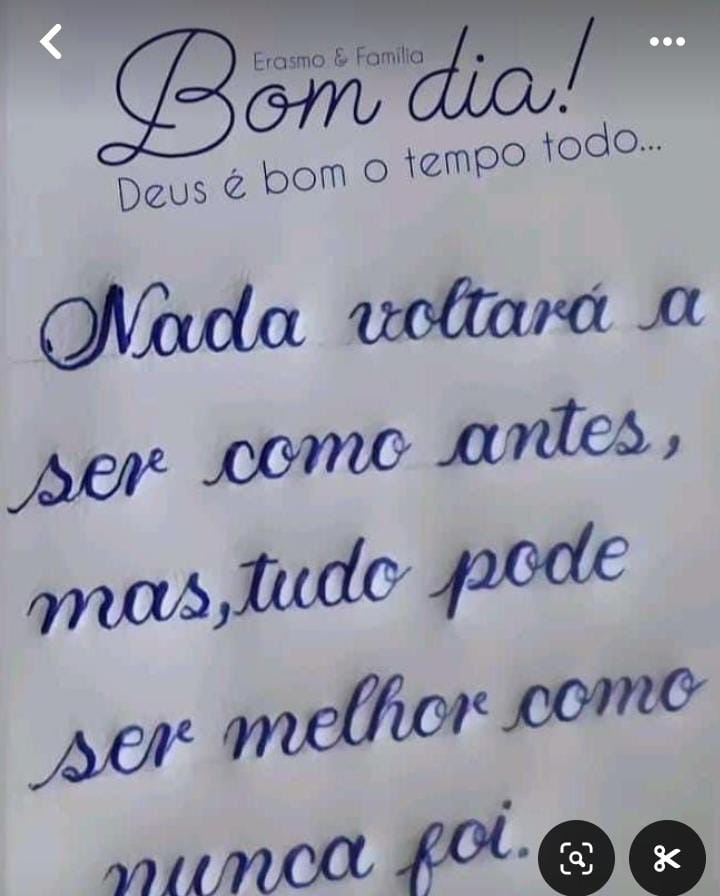 Erasmo & Família
Bom dia!
Deus é bom o tempo todo...
Nada voltará a
ser como antes,
mas,tudo pode
ser melhor como
nunca foi.